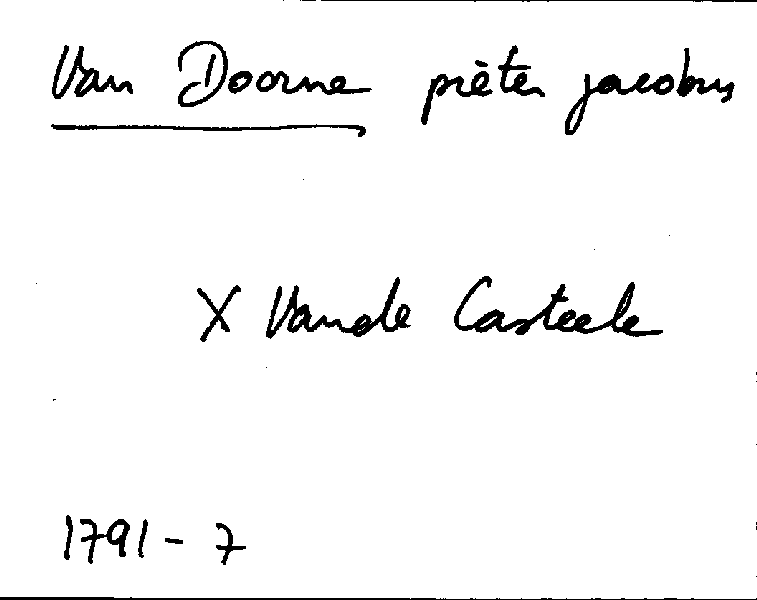 Van Doorne pièter jacobus
X Vande Casteele
1791 - 7